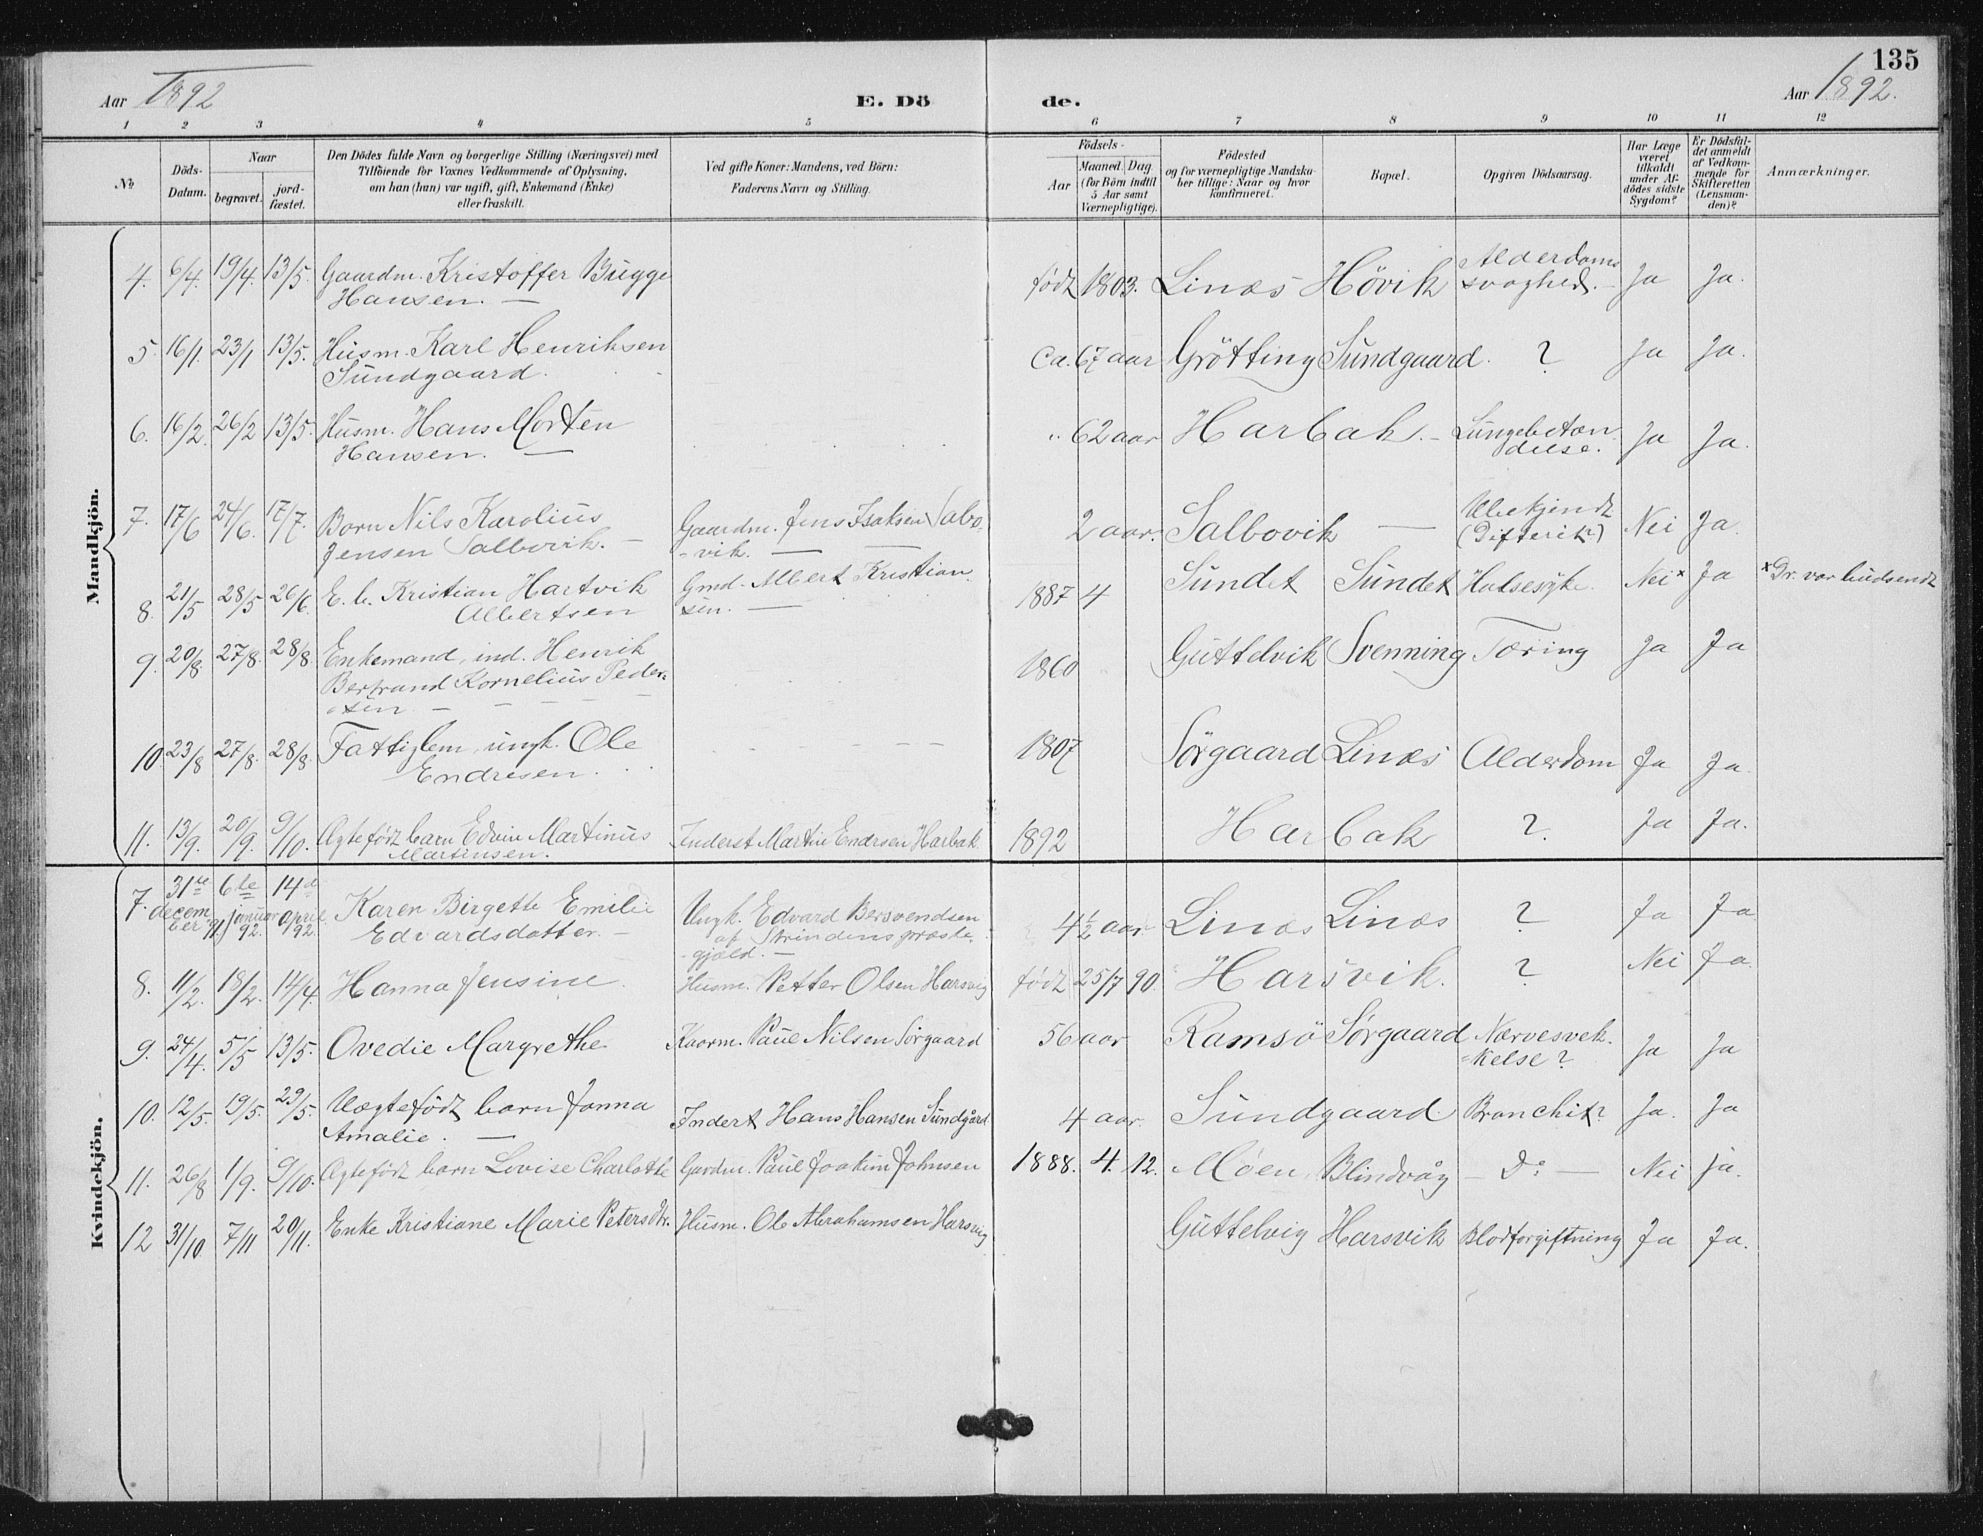 135
Aar 1892
E. Dö
de.
Aar 1892.
1 2 3 4 5 6 7 8 9 10 11 12
No
Döds-Datum.
Naar
begravet.
jord-fæstet.
Den Dödes fulde Navn og borgerlige Stilling (Næringsvei) med
Tilföiende for Voxnes Vedkommende af Oplysning,
om han (hun) var ugift, gift, Enkemand (Enke)
eller fraskilt.
Ved gifte Koner: Mandens, ved Börn:
Faderens Navn og Stilling.
Födsels-
Aar
Maaned. Dag.
(for Börn indtil
5 Aar samt
Værnepligtige).
Födested
og for værnepligtige Mandska-
ber tillige: Naar og hvor
konfirmeret.
Bopæl.
Opgiven Dödsaarsag.
Har Læge
været
tilkaldt
under Af-
dödes sidste
Sygdom?
Er Dödsfal-
det anmeldt
af Vedkom-
mende for
Skifteretten
(Lensman-
den)?
Anmærkninger.
Mandkjön.
4. 6/4. 19/4. 13/5. Gaardm. Kristoffer Bugge født 1803. Linæs Hövik Alderdoms Ja Ja.
Hansen. — svaghed.
5. 16/1. 23/1 13/5. Husm. Karl Henriksen Ca. 67 aar Grötting Sundgaard. ? Ja Ja.
Sundgaard.
6. 16/2. 26/2 13/5. Husm. Hans Morten " 62 aar Harbak. — Lungebetæn Ja Ja.
Hansen. — delse.
7. 17/6 24/6. 17/7. Barn Nils Karolius Gaardm. Jens Isaksen Salbo 2 aar. Salbovik — Ubekjendt Nei Ja.
Jensen Salbovik. — -vik. — (Difterit?)
8. 21/5 28/5 26/6. E. b. Kristian Hartvik Gmd. Albert Kristian 1887 4 Sundet Sundet Halsesyke. Nei x Ja x Dr. var budsendt
Albertsen sen. —
9. 20/8. 27/8. 28/8. Enkemand, ind. Henrik 1860 Guttelvik Svenning Tæring Ja Ja
Bertrand Kornelius Peder-
sen
10. 23/8 27/8. 28/8. Fattiglem, ungk. Ole 1807 Sørgaard Linæs Alderdom Ja Ja.
Endresen.
11. 13/9. 20/9. 9/10. Ægtefødt barn Edvin Martinus Inderst Martin Endresen Harbak 1892 Harbak ? Ja Ja.
Martinsen.
Kvindekjön.
7. 31te decem ber 91. 6te januar 92. 14d april 92. Karen Birgette Emilie Ungk. Edvard Bersvendsen 4½ aar Linæs Linæs ? Ja Ja
Edvardsdatter. — af Strindens præste-
gjæld. —
8. 11/2. 18/2. 14/4 Hanna Jensine. Husm. Petter Olsen Harsvig født 25/7 90. Harsvik. ? Nei Ja
9. 24/4. 5/5 13/5. Ovedie Margrethe Kaarm. Paul Nilsen Sørgaard 56 aar Ramsö Sørgaard Nærvesvek- Ja Ja
kelse?
10. 12/5. 19/5. 29/5. Uægtefödt barn Janna Indert Hans Hansen Sundgård 4 aar. Sundgaard Bronchit? Ja. Ja
Amalie. —
11. 26/8 1/9. 9/10. Ægtefödt barn Lovise Charlotte Gardm. Paul Joakim Johnsen 1888. 4. 12. Möen Blindvåg — Do — Nei ja.
12 31/10. 7/11 20/11. Enke Kristiane Marie Petersdtr. Husm. Ole Abrahamsen Harsvig Guttelvig Harsvik Blodforgiftning Ja Ja.